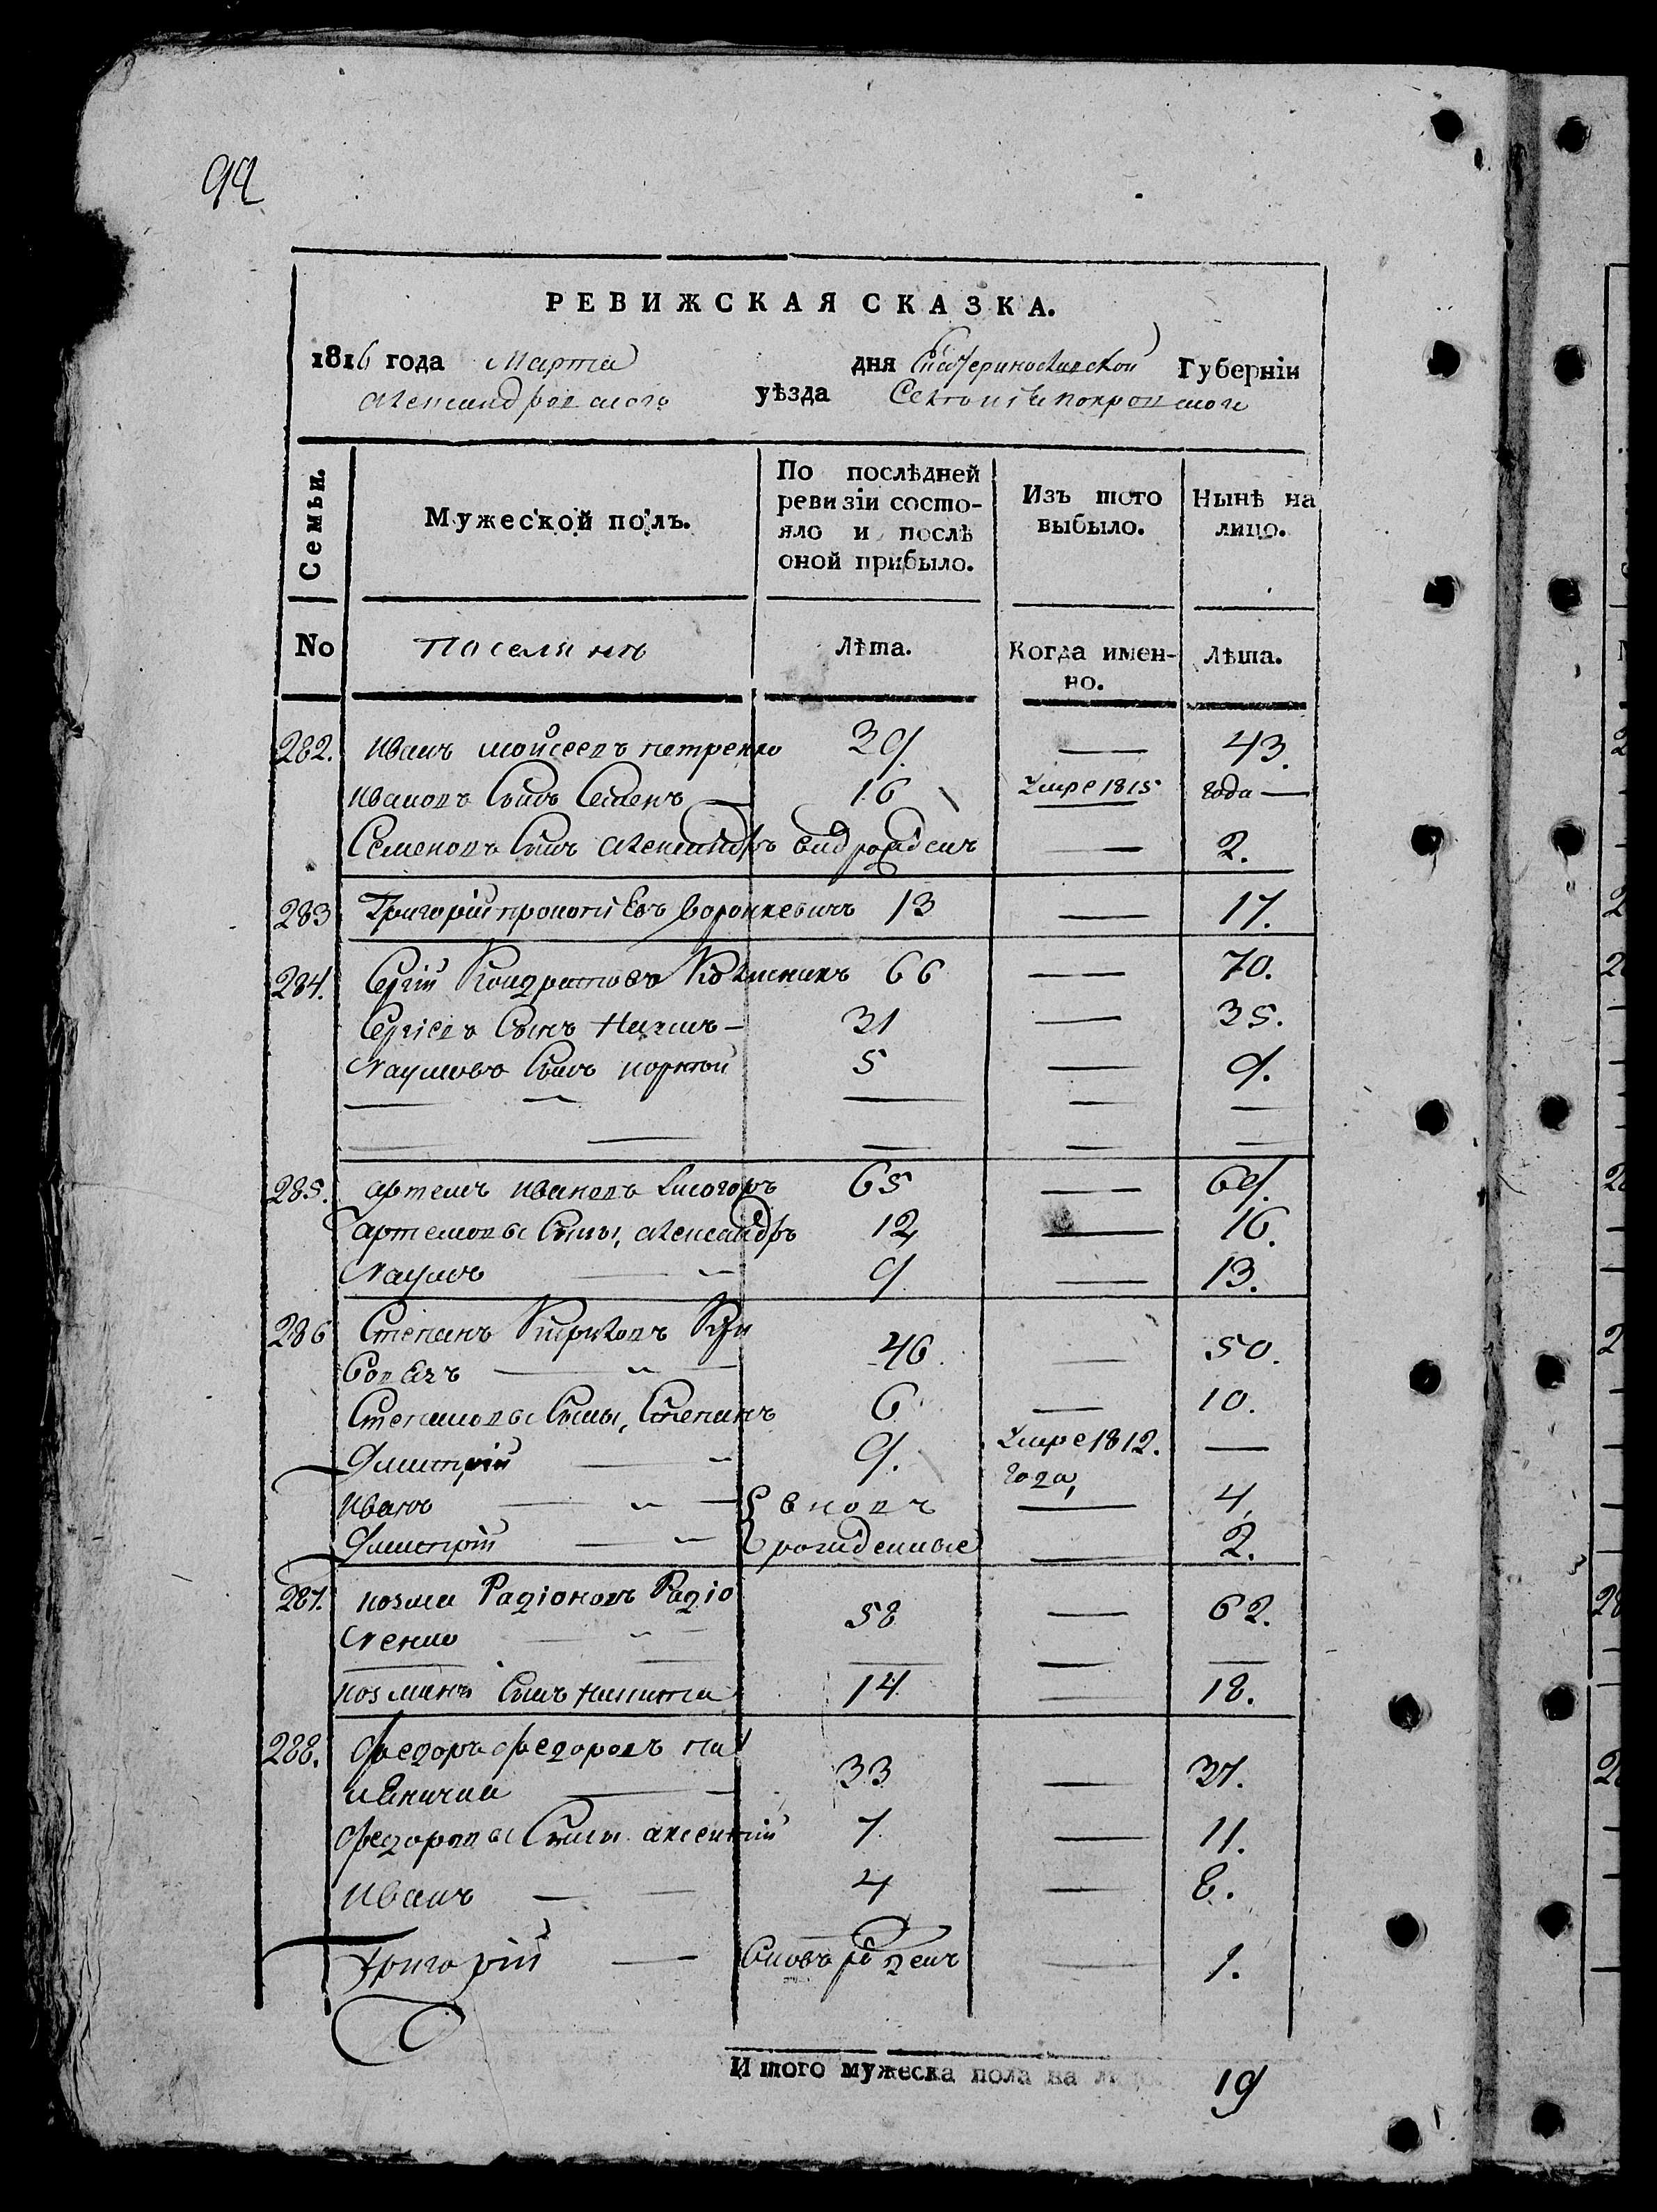 94
РЕВИЖСКАЯ СКАЗКА.
1816 года Марта дня Екатеринославской Губерніи
Александровского уѣзда Селенія Покровского
Семьи.
Мужеской полъ.
По послѣдней ревизіи состояло и послѣ оной прибыло.
Изъ того выбыло.
Нынѣ на лицо.
No
Поселянъ
Лѣта.
Когда именно.
Лѣта.
282. Иванъ Мойсеевъ Петренко 39. — 43.
Ивановъ Сынъ Семенъ — 16 Умре 1815 года —
Семеновъ Сынъ Александръ вновь рожденъ — 2.
283 Григорій Прокопіевъ Воронкевичъ 13 — 17.
284. Сергій Кондратовъ Колісникъ 66 — 70.
Сергіевъ Сынъ Наумъ — 31 — 35.
Наумовъ Сынъ Корній 5 — 9.
285. Артемъ Ивановъ Лисогоръ 65 — 69.
Артемовы Сыны, Александръ 12 — 16.
Наумъ — 9 — 13.
286 Степанъ Кириловъ
46. — 50.
Степановы Сыны, Степанъ 6 — 10.
Дмитрій — 9. Умре 1812. года —
Иванъ — вновь — 4.
Дмитрій — рожденные — 2.
287. Козма Радіоновъ Радіо
ненко — 58 — 62.
Козминъ Сынъ Никита 14 — 18.
288. Федоръ Федоровъ
33 — 37.
Федоровы Сыны Аксентій 7 — 11.
Иванъ — 4 — 8.
Григорій — вновь рожденъ — 1.
Итого мужеска пола на лицо 19